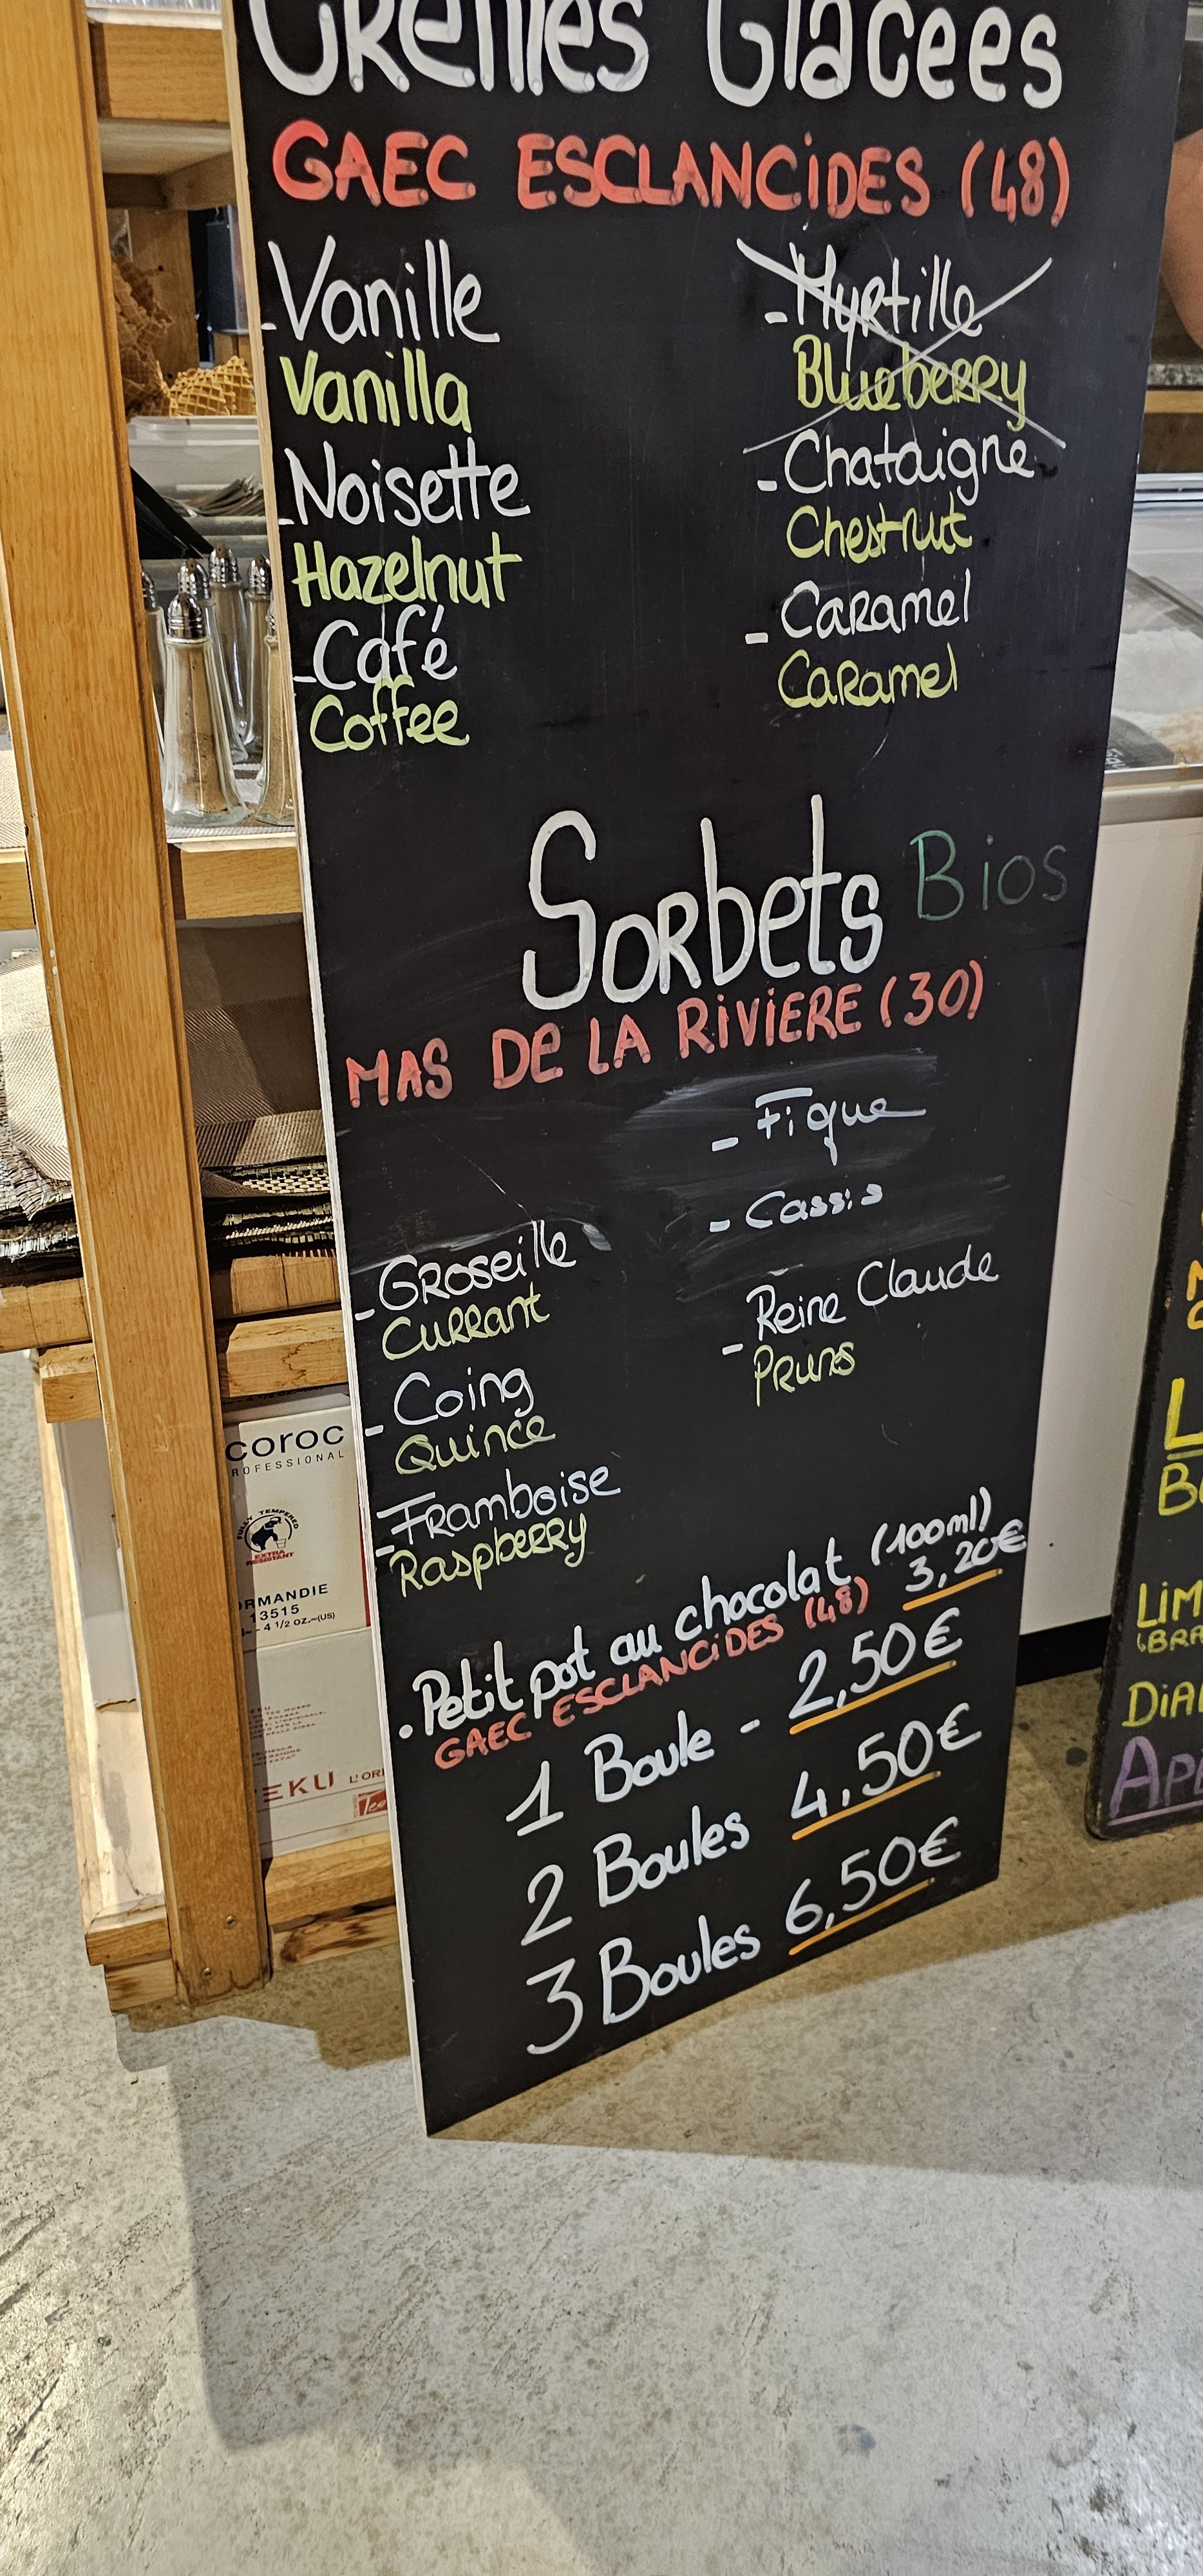 Crèmes Glacées
GAEC ESCLANCIDES (48)
-Vanille
Vanilla
-Noisette
Hazelnut
-Café
Coffee
-Myrtille
Blueberry
-Chataigne
Chestnut
-Caramel
Caramel
Sorbets Bios
MAS DE LA RIVIERE (30)
-Groseille
Currant
-Coing
Quince
-Framboise
Raspberry
- Figue
- Cassis
- Reine Claude
Pruns
.Petit pot au chocolat (100ml)
GAEC ESCLANCIDES (48) 3,20€
1 Boule - 2,50€
2 Boules 4,50€
3 Boules 6,50€
coroc
ROFESSIONAL
FULLY TEMPERED
EXTRA
RESISTANT
ORMANDIE
13515
4 1/2 oz.~(US)
EKU L'ORI
LIM
DIA
APÉ